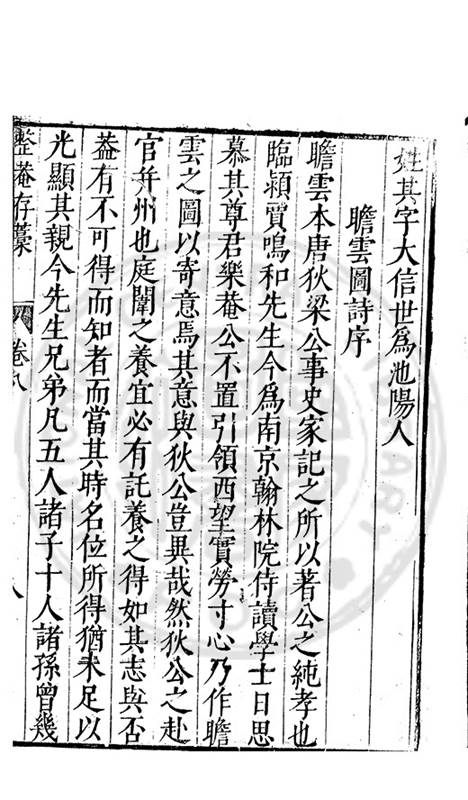 姓其字大信世爲池陽人
瞻雲圖詩序
瞻雲本唐狄梁公事史家記之所以著公之純孝也
臨潁賈鳴和先生今爲南京翰林院侍讀學士日思
慕其尊君樂菴公不置引領西望實勞寸心乃作瞻
雲之圖以寄意焉其意與狄公豈異哉然狄公之赴
官幷州也庭闈之養宜必有託養之得如其志與否
葢有不可得而知者而當其時名位所得猶未足以
光顯其親今先生兄弟凡五人諸子十人諸孫曾幾
整菴存藁
卷八
八